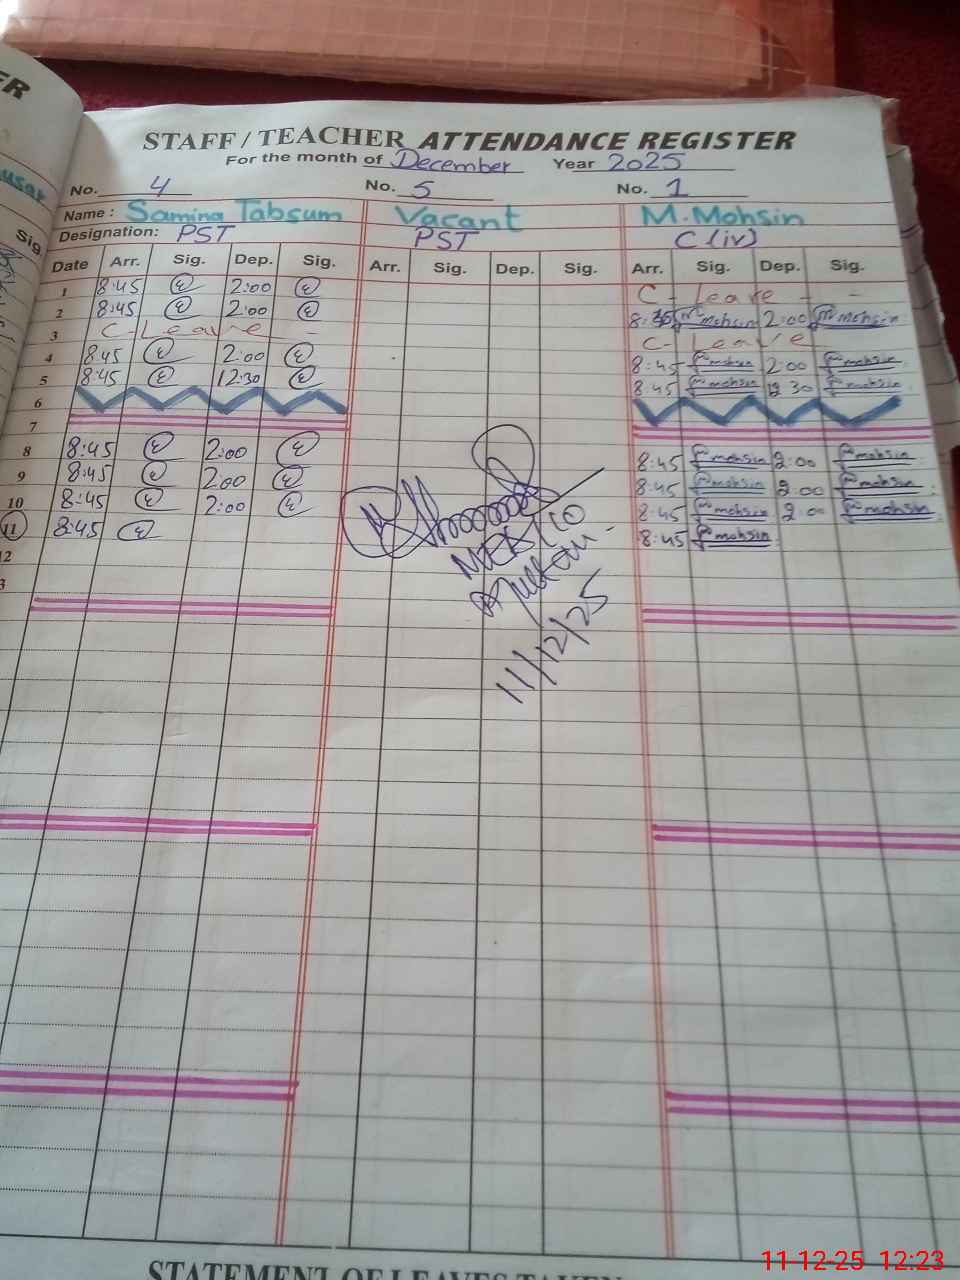 ER
STAFF / TEACHER ATTENDANCE REGISTER
For the month of December Year 2025
No. 4 No. 5 No. 1
Name : Samina Tabsum Vacant M. Mohsin
Designation: PST PST C (iv)
Sig.
Date Arr. Sig. Dep. Sig. Arr. Sig. Dep. Sig. Arr. Sig. Dep. Sig.
1 8:45 2:00 C - Leave -
2 8:45 2:00 8:30 mohsin 2:00 mohsin
3 C - Leave - C - Leave
4 8:45 2:00 8:45 mohsin 2:00 mohsin
5 8:45 12:30 8:45 mohsin 12 30 mohsin
6
7
8 8:45 2:00 8:45 mohsin 2:00 mohsin
9 8:45 2:00 8:45 mohsin 2:00 mohsin
10 8:45 2:00 8:45 mohsin 2:00 mohsin
11 8:45 8:45 mohsin
12
3
11/12/25
STATEMENT OF LEAVES TAKEN
11-12-25 12:23